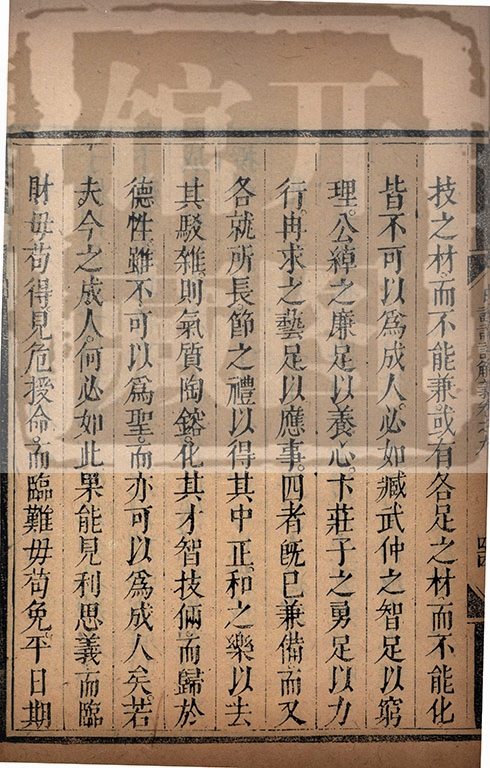 技之材而不能兼或有各足之材而不能化
皆不可以爲成人必如臧武仲之智足以窮
理公綽之廉足以養心卞莊子之勇足以力
行冉求之藝足以應事四者旣已兼備而又
各就所長節之禮以得其中正和之樂以去
其駁雜則氣質陶鎔化其才智技倆而歸於
德性雖不可以爲聖而亦可以爲成人矣若
夫今之成人何必如此果能見利思義而臨
財毋苟得見危授命而臨難毋苟免平日期